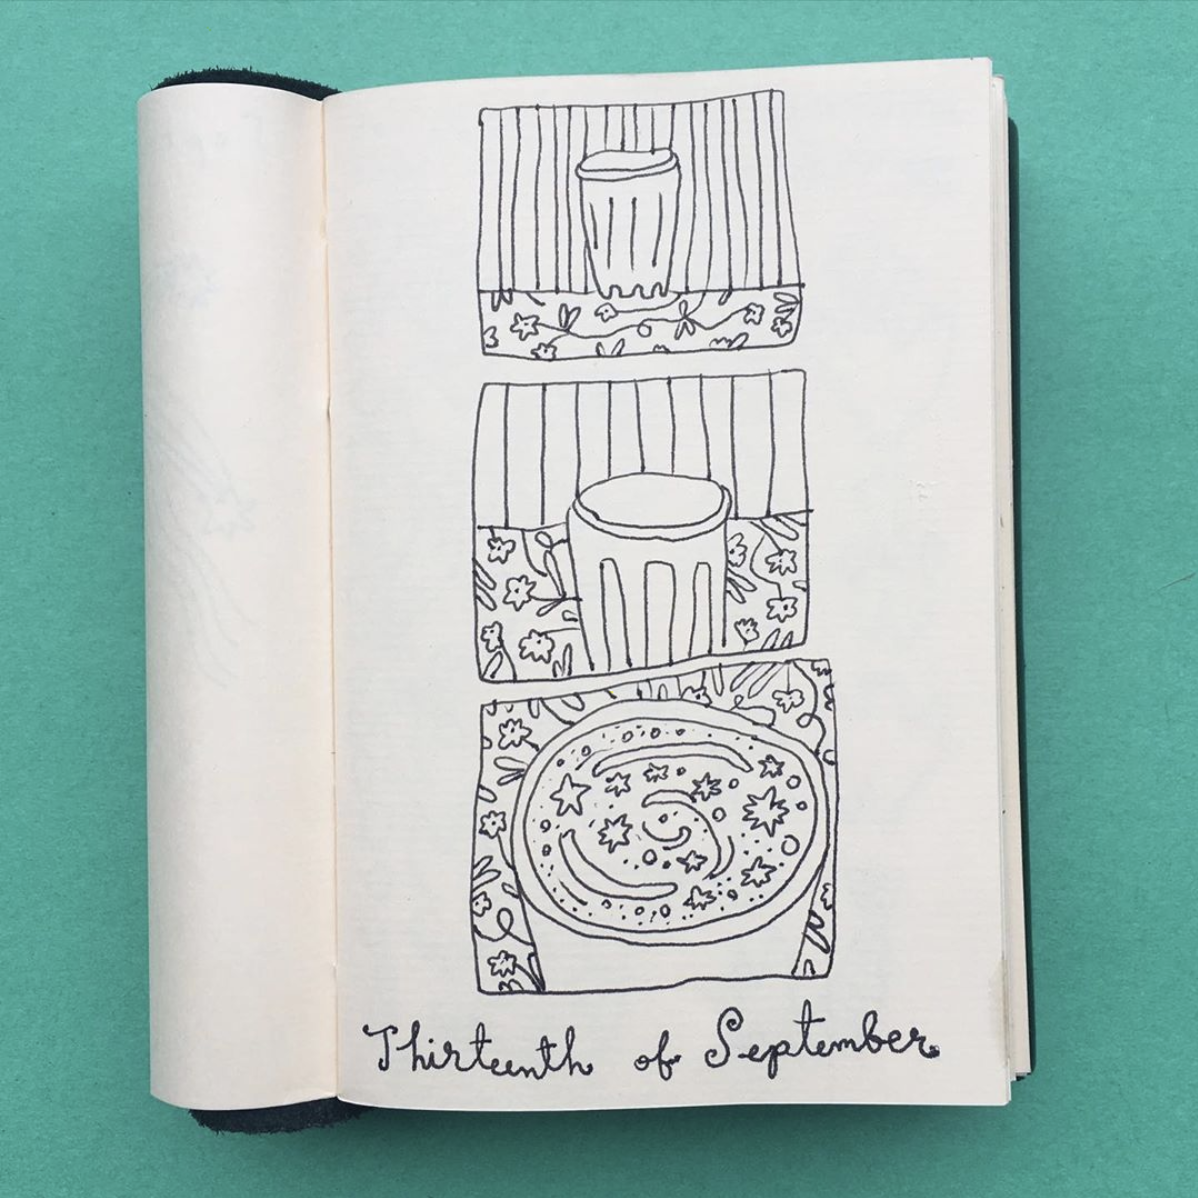 Thirteenth of September